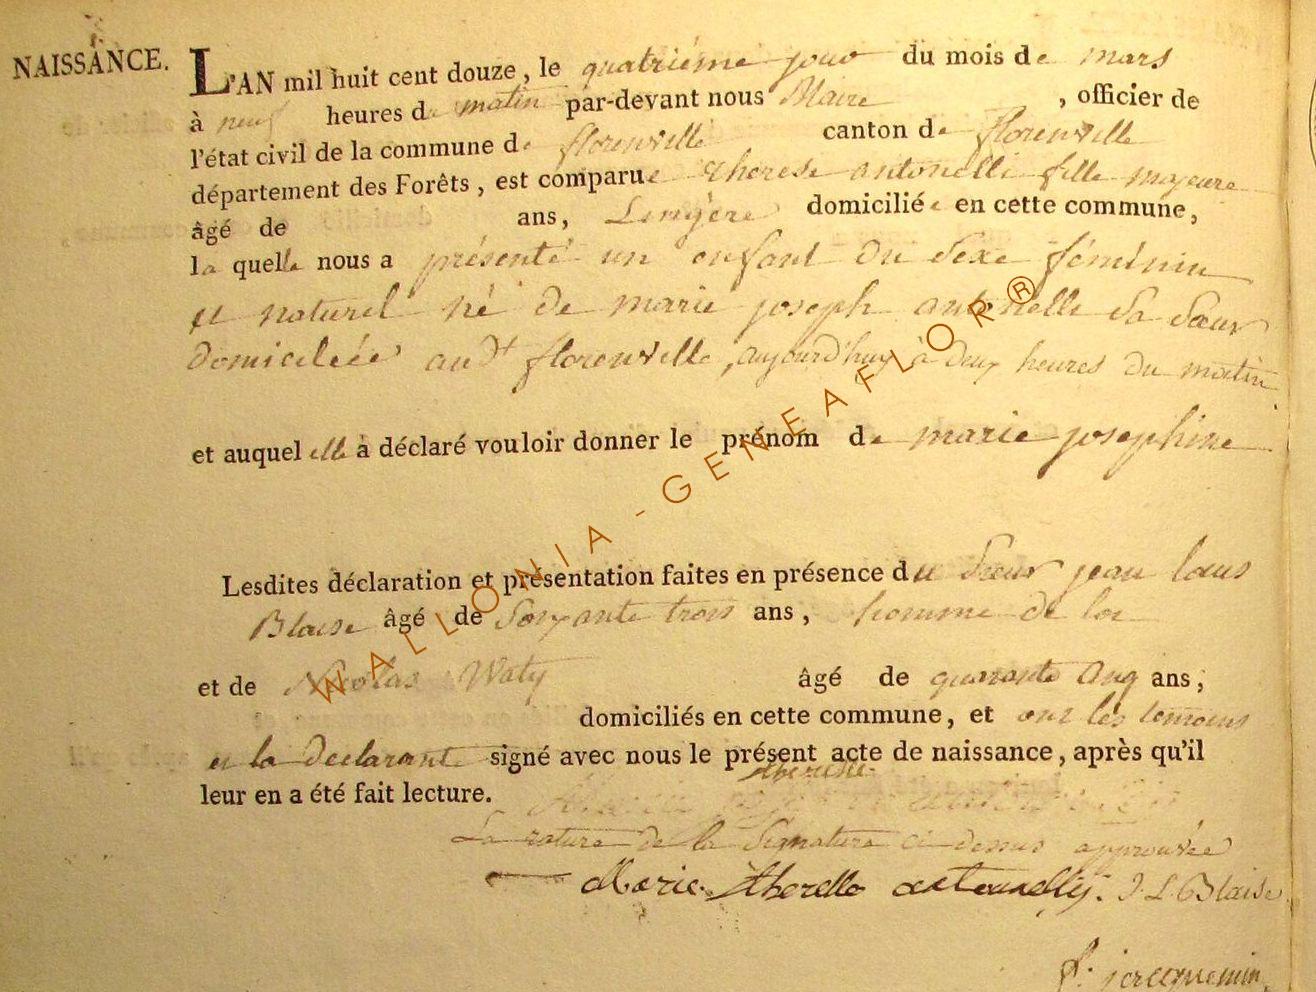 NAISSANCE.
L'AN mil huit cent douze, le quatriéme jour du mois de mars
à neuf heures de matin par-devant nous Maire , officier de
l'état civil de la commune de florenville canton de florenville
département des Forêts, est comparue therese antonelli fille majeure
âgé de ans, Lingère domiciliée en cette commune,
la quelle nous a présenté un enfant du sexe féminin
et naturel né de marie joseph antonelli sa sœur
domiciliée audt florenville, aujourd'huy à deux heures du matin
et auquel elle à déclaré vouloir donner le prénom de marie josephine
Lesdites déclaration et présentation faites en présence du sieur jean louis
Blaise âgé de soixante trois ans, homme de loi
et de Nicolas Waty âgé de quarante cinq ans,
domiciliés en cette commune, et ont les temoins
et la declarante signé avec nous le présent acte de naissance, après qu'il
leur en a été fait lecture.
La rature de la signature ci dessus approuvée
Marie J. L. Blaise
f. jacquemin
WALLONIA-GENEAFLOR®